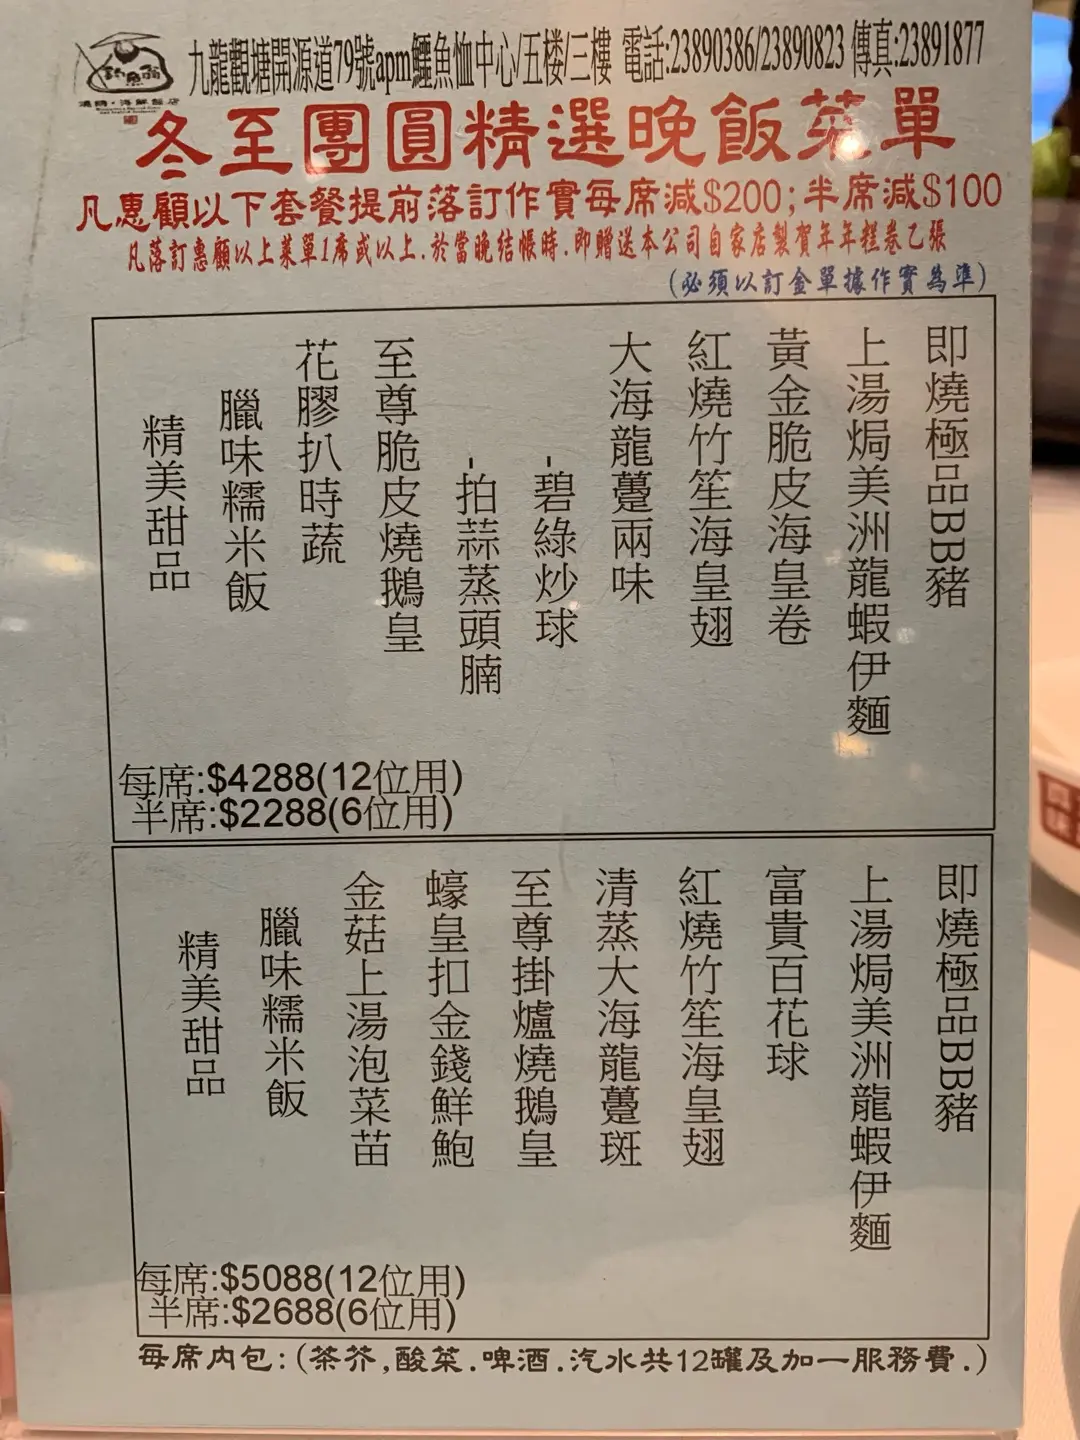 釣魚翁
燒鵝·海鮮飯店
九龍觀塘開源道79號apm鱷魚恤中心/五楼/三樓 電話:23890386/23890823 傳真:23891877
冬至團圓精選晚飯菜單
凡惠顧以下套餐提前落訂作實每席減$200;半席減$100
凡落訂惠顧以上菜單1席或以上.於當晚結帳時.即贈送本公司自家店製賀年年糕卷乙張
(必須以訂金單據作實為準)
即燒極品BB豬
上湯焗美洲龍蝦伊麵
黃金脆皮海皇卷
紅燒竹笙海皇翅
大海龍躉兩味
-碧綠炒球
-拍蒜蒸頭腩
至尊脆皮燒鵝皇
花膠扒時蔬
臘味糯米飯
精美甜品
每席:$4288(12位用)
半席:$2288(6位用)
即燒極品BB豬
上湯焗美洲龍蝦伊麵
富貴百花球
紅燒竹笙海皇翅
清蒸大海龍躉斑
至尊掛爐燒鵝皇
蠔皇扣金錢鮮鮑
金菇上湯泡菜苗
臘味糯米飯
精美甜品
每席:$5088(12位用)
半席:$2688(6位用)
每席內包:(茶芥,酸菜.啤酒.汽水共12罐及加一服務費.)